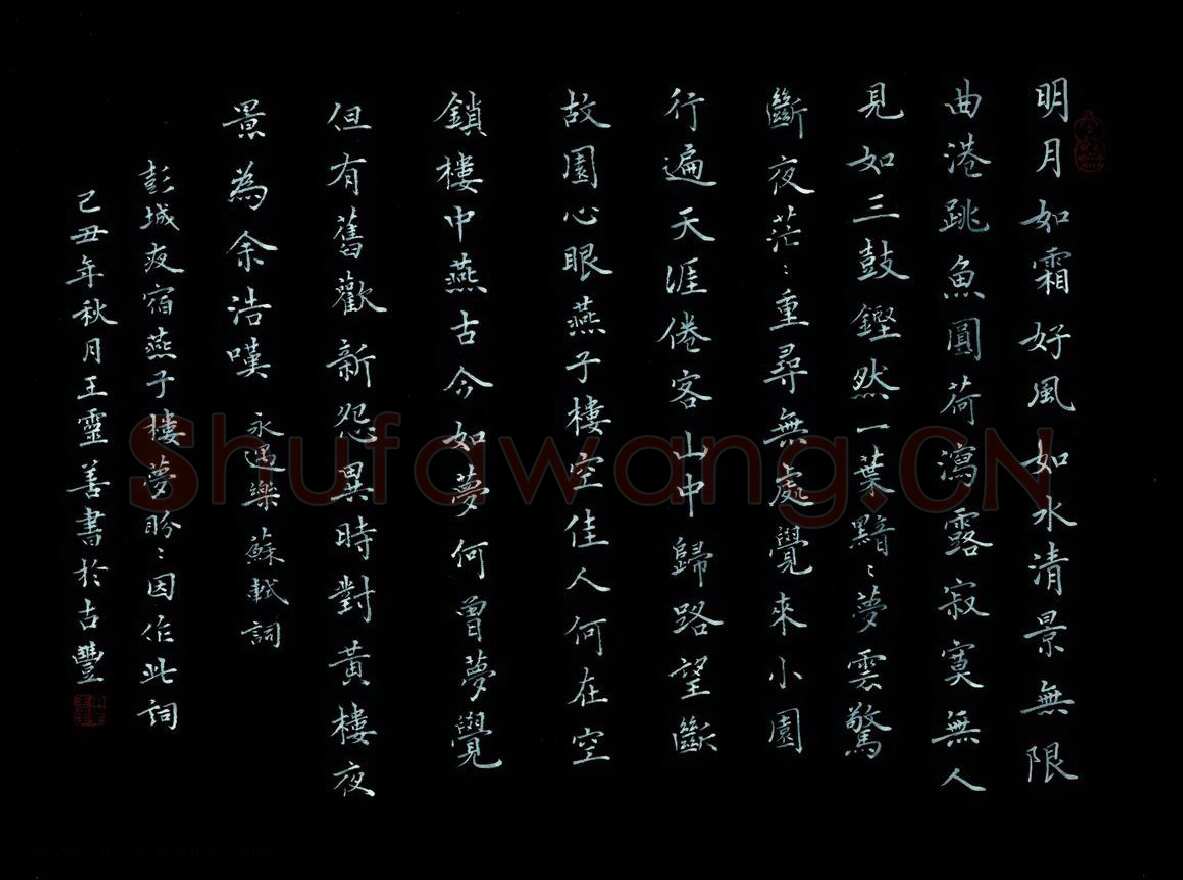 明月如霜好風如水清景無限
曲港跳魚圓荷瀉露寂寞無人
見如三鼓鏗然一葉黯〻夢雲驚
斷夜茫〻重尋無處覺來小園
行遍天涯倦客山中歸路望斷
故園心眼燕子樓空佳人何在空
鎖樓中燕古今如夢何曾夢覺
但有舊歡新怨異時對黃樓夜
景為余浩嘆 永遇樂 蘇軾詞
彭城夜宿燕子樓夢盼〻因作此詞
己丑年秋月王靈善書於古豐
Shufawang.CN